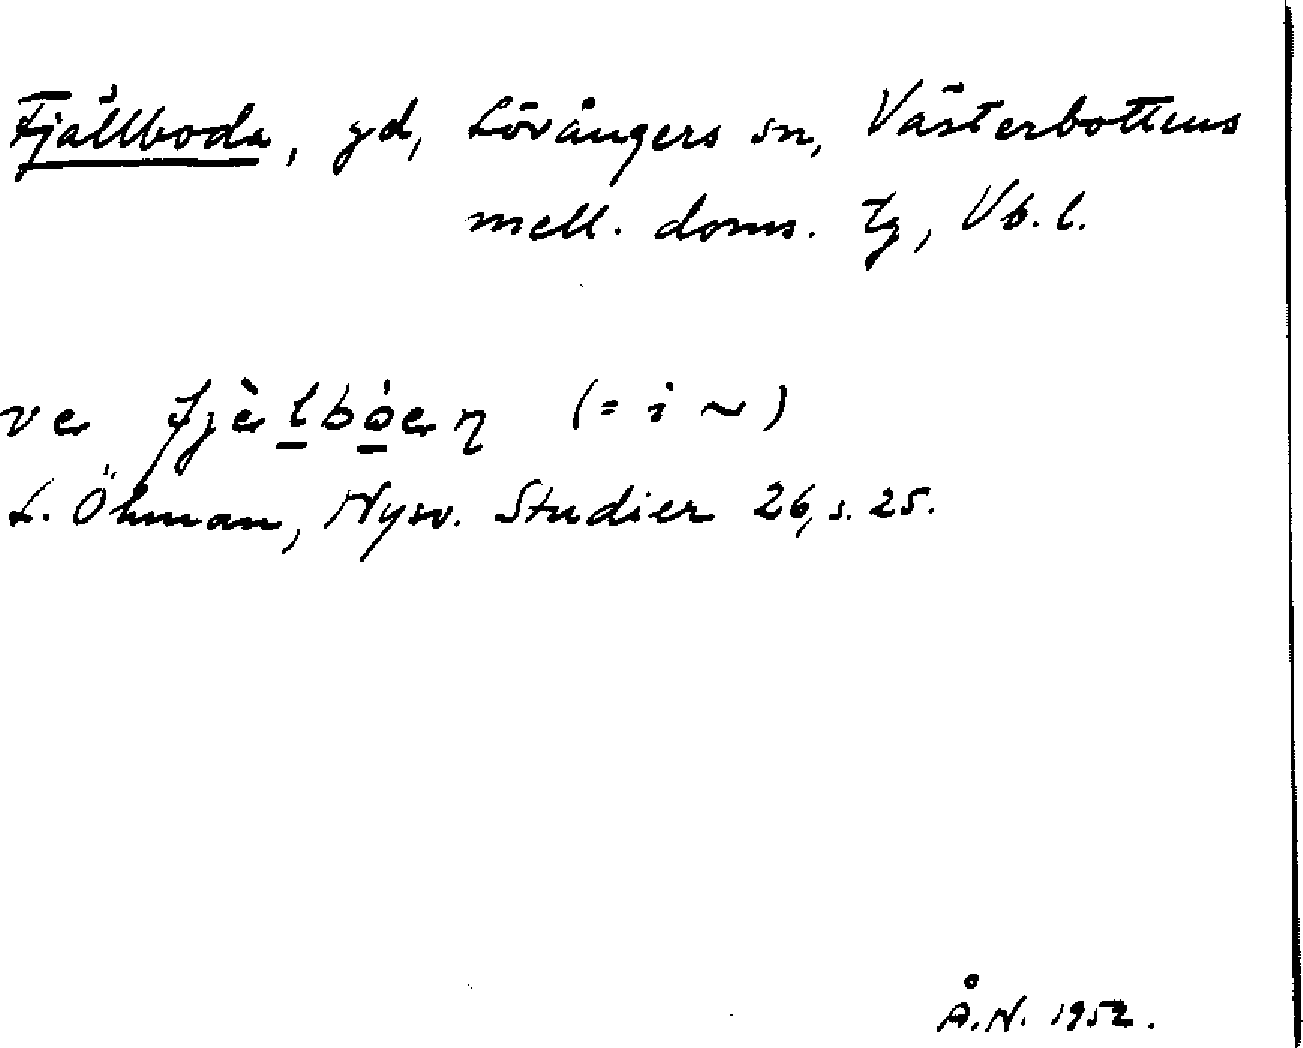 Fjällboda, gd, Lövångers sn, Västerbottens
mell. doms. tg, Vb. l.
ve fjèlbóen (= i ~)
L. Öhman, Nysv. Studier 26, s. 25.
Å.N. 1952.